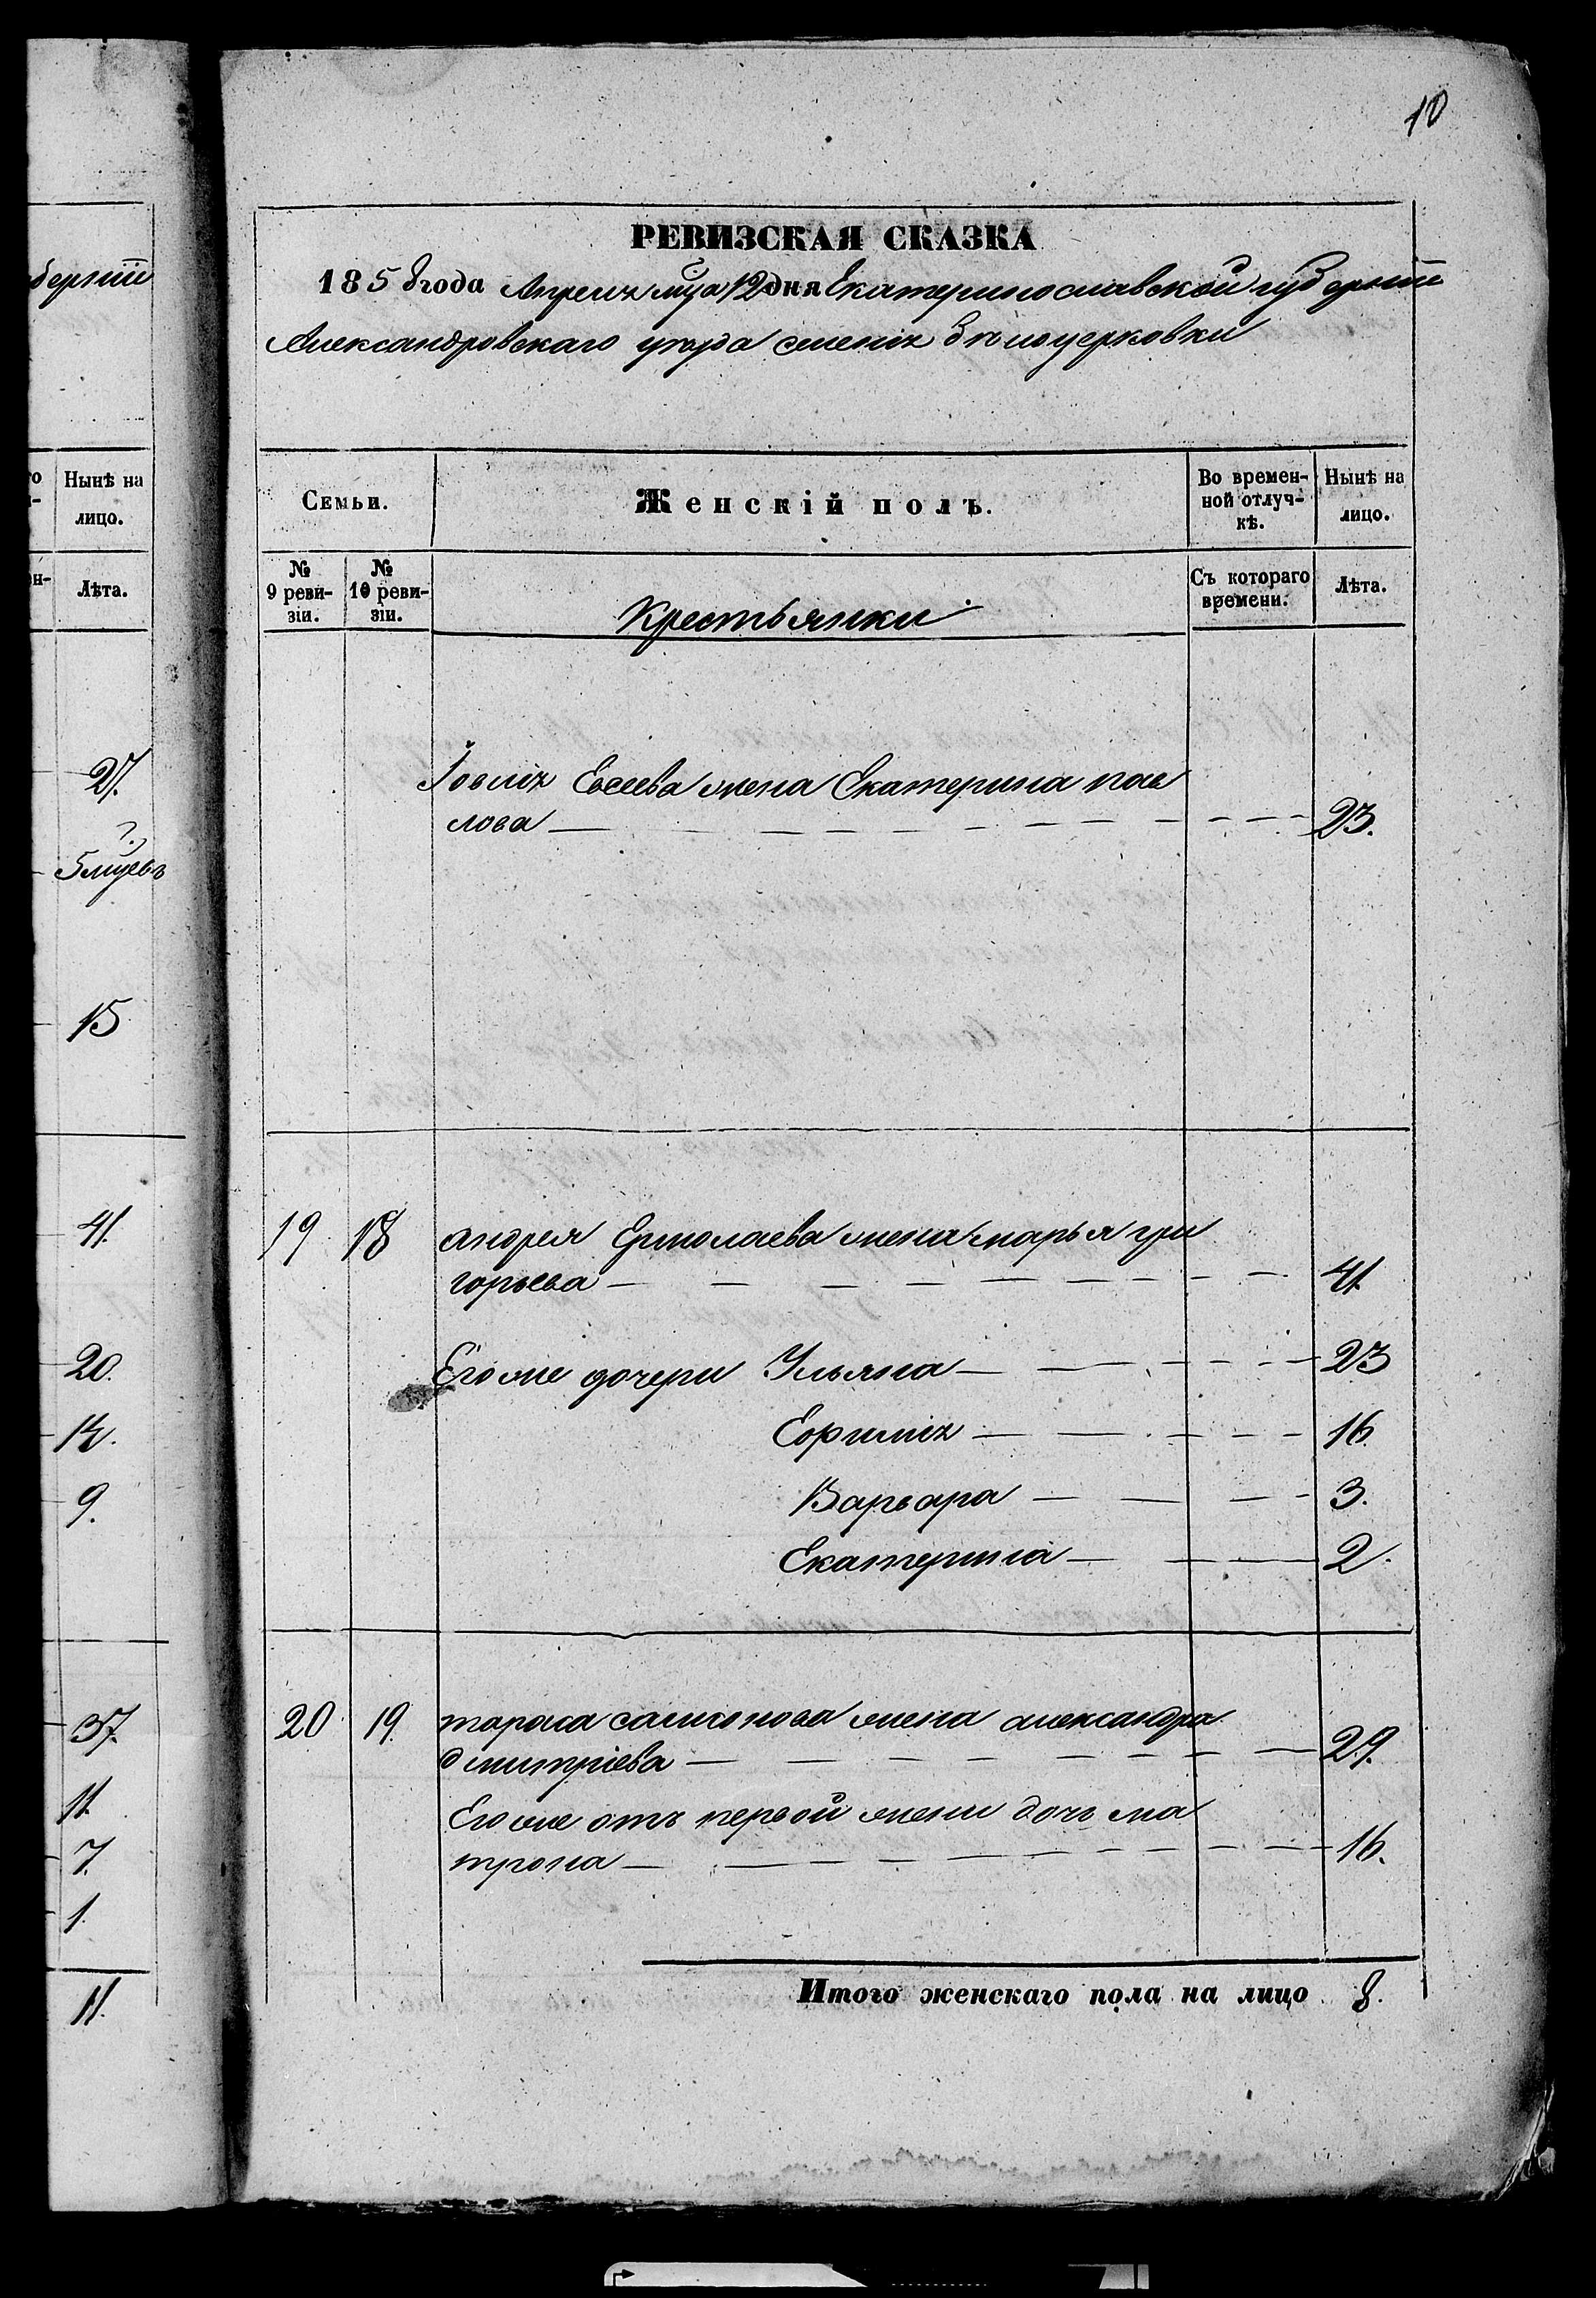 10
РЕВИЗСКАЯ СКАЗКА
1858 года Апреля мца 12 дня Екатеринославской губернiи
Александровскаго уезда имения Бѣлоцерковки
Семьи.
Женскій полъ.
Во времен-
ной отлуч-
кѣ.
Нынѣ на
лицо.
№
9 реви-
зіи.
№
10 реви-
зіи.
Крестьянки
Съ котораго
времени.
Лѣта.
Евсеева жена Екатерина пав
лова 23.
19 18 андрея Ермолаева жена марья гри
горьева 41
Его же дочери Ульяна 23
Ефимия 16
Варвара 3.
Екатерина 2.
20 19 тараса самсонова жена александра
дмитрiева 29.
Его же отъ первой жены дочь ма
трона 16.
Итого женскаго пола на лицо 8.
бернiи
Нынѣ на
лицо.
Лѣта.
27.
5 мцевъ
15
41.
20.
14.
9.
37.
11
7.
1.
11.